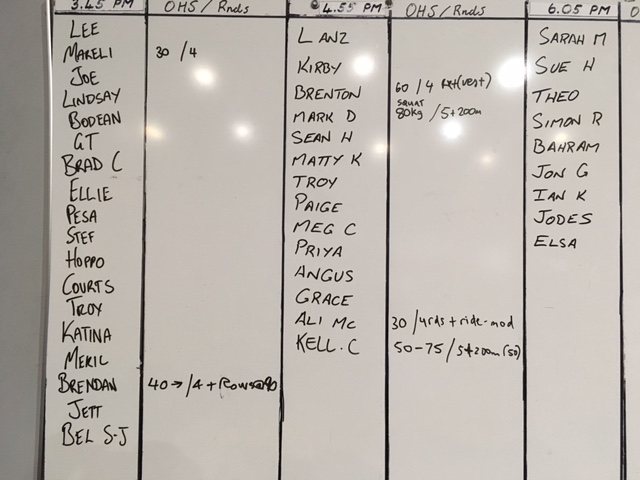 3.45 PM OHS/Rnds 4.55 PM OHS/Rnds 6.05 PM
LEE
MARELI 30 /4
JOE
LINDSAY
BODEAN
GT
BRAD C
ELLIE
PESA
STEF
HOPPO
COURTS
TROY
KATINA
MEKIL
BRENDAN 40 → /4 + Rows@90
JETT
BEL S-J
LANZ
KIRBY
BRENTON 60 /4 (vest)
MARK D SQUAT 80kg /5+200m
SEAN H
MATTY K
TROY
PAIGE
MEG C
PRIYA
ANGUS
GRACE
ALI MC 30 /4rds + ride-mod
KELL.C 50-75 /5+200m (50)
SARAH M
SUE H
THEO
SIMON R
BAHRAM
JON G
IAN K
JODES
ELSA